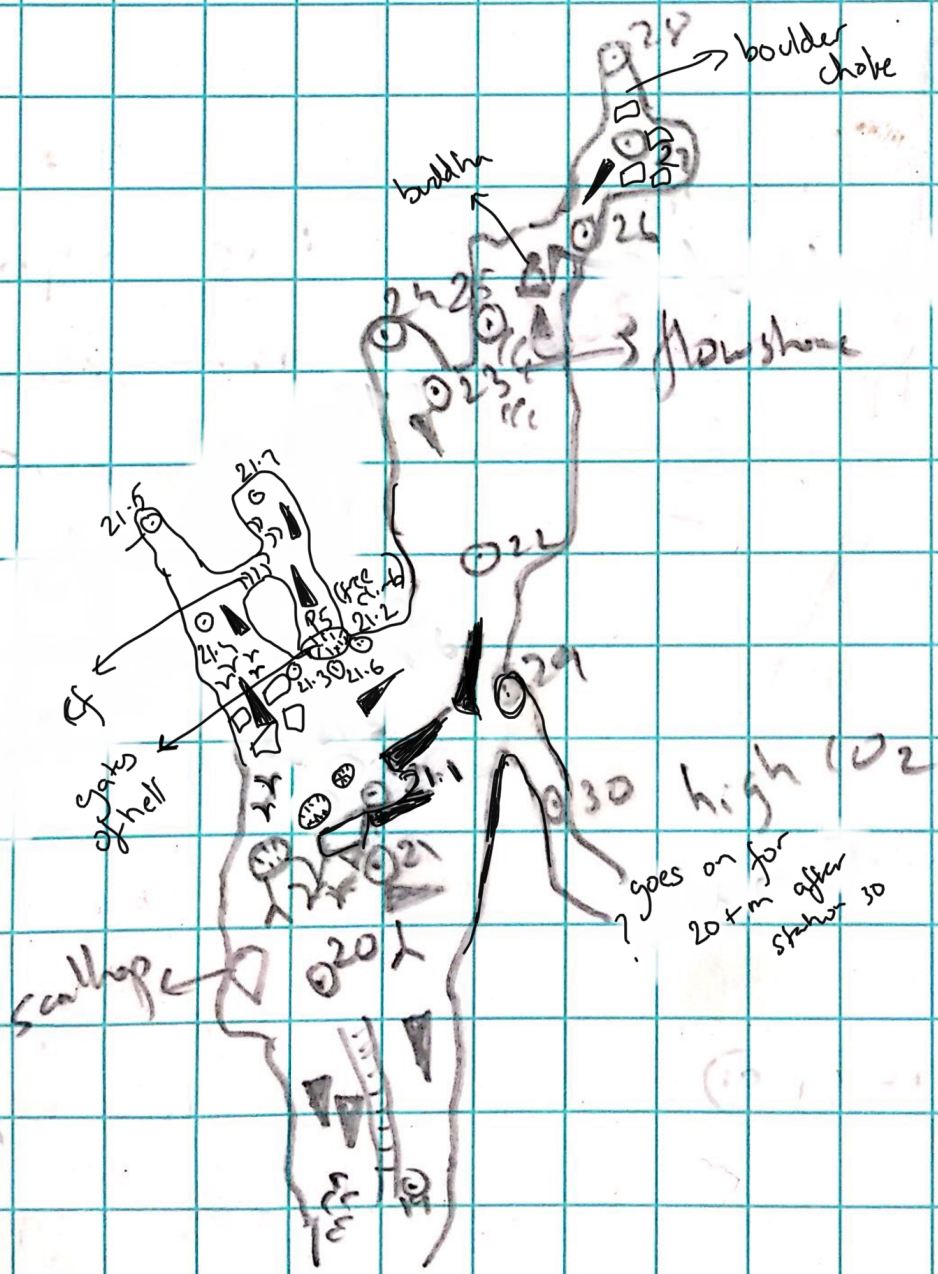 28
boulder
choke
27
buddha
26
24
25
flowstone
23
22
21.7
21.5
(free
climb)
P5
21.2
21.3
21.6
cf
gates
of hell
29
21.1
30 high CO2
21
? goes on for
20+m after
station 30
20
scallop
19